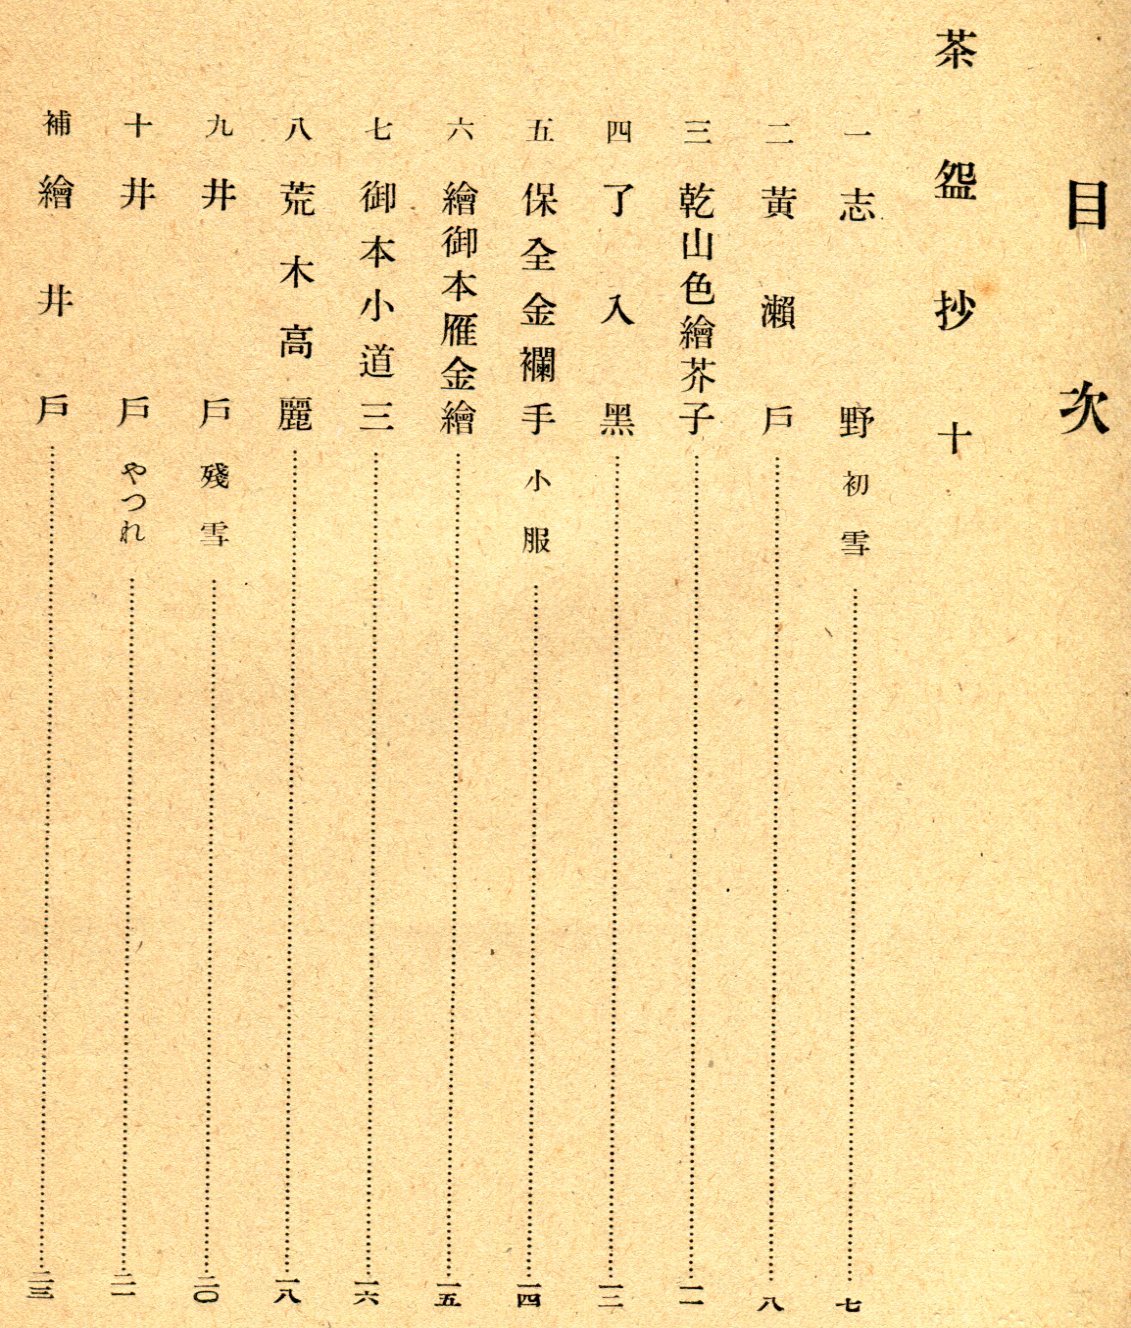 目次
茶盌抄十
一 志野 初雪……七
二 黃瀨戶……八
三 乾山色繪芥子……一一
四 了入黑……一二
五 保全金襴手 小服……一四
六 繪御本雁金繪……一五
七 御本小道三……一六
八 荒木高麗……一八
九 井戶 殘雪……二〇
十 井戶 やつれ……二一
補 繪井戶……二三